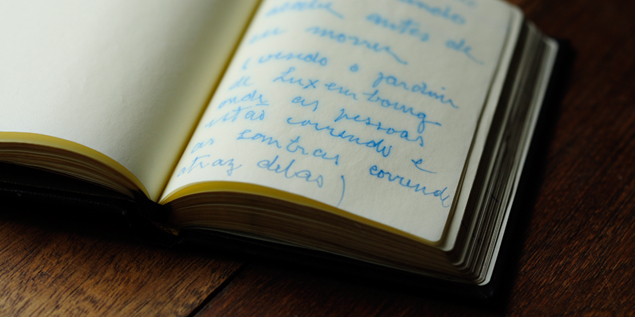 acabe antes de
eu morrer
(vendo o jardin
de Luxembourg
onde as pessoas
estão correndo e
as sombras correndo
atraz delas)